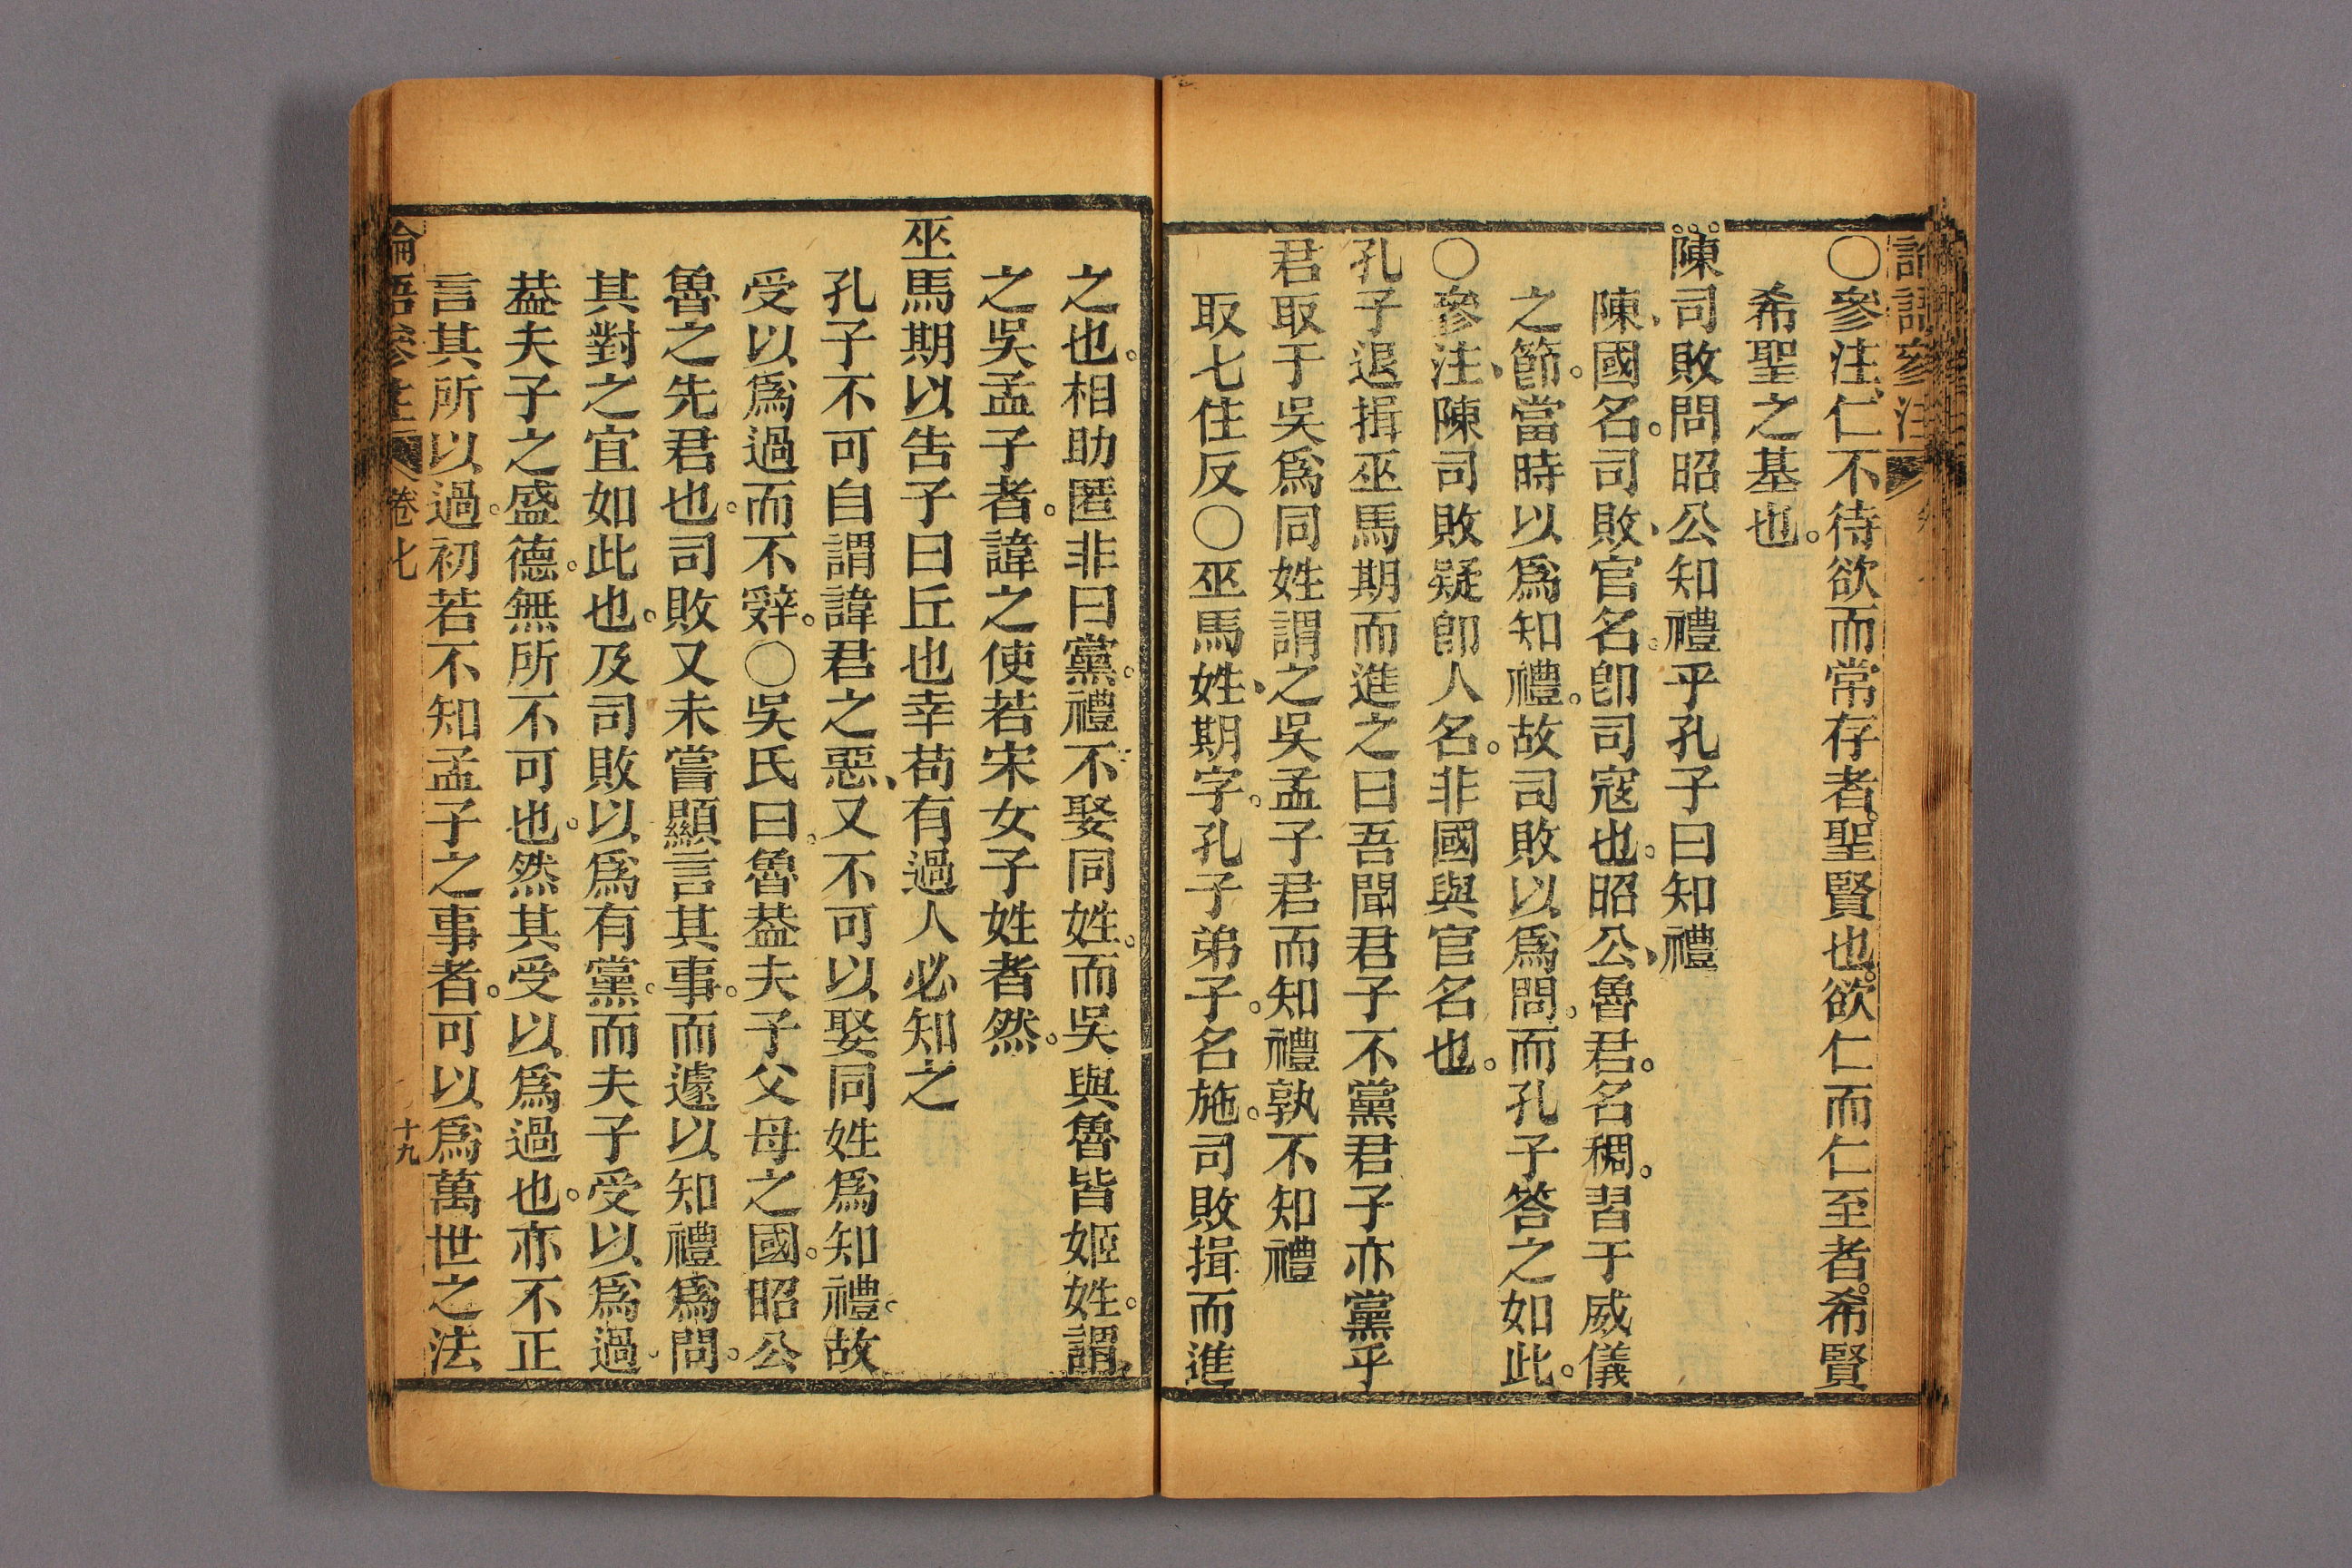 論語參注
〇參注、仁不待欲而常存者。聖賢也。欲仁而仁至者。希賢
希聖之基也。
陳司敗問昭公知禮乎孔子曰知禮
陳、國名。司敗、官名。卽司寇也。昭公、魯君。名稠。習于威儀
之節。當時以爲知禮。故司敗以爲問。而孔子答之如此。
〇參注、陳司敗疑卽人名。非國與官名也。
孔子退揖巫馬期而進之曰吾聞君子不黨君子亦黨乎
君取于吳爲同姓謂之吳孟子君而知禮孰不知禮
取七住反〇巫馬姓、期字。孔子弟子。名施。司敗揖而進
之也。相助匿非曰黨。禮不娶同姓。而吳與魯皆姬姓。謂
之吳孟子者。諱之使若宋女子姓者然。
巫馬期以告子曰丘也幸苟有過人必知之
孔子不可自謂諱君之惡、又不可以娶同姓爲知禮。故
受以爲過而不辤。〇吳氏曰。魯葢夫子父母之國。昭公
魯之先君也。司敗又未嘗顯言其事。而遽以知禮爲問。
其對之宜如此也。及司敗以爲有黨。而夫子受以爲過。
葢夫子之盛德。無所不可也。然其受以爲過也。亦不正
言其所以過。初若不知孟子之事者。可以爲萬世之法
論語參注 卷七 十九